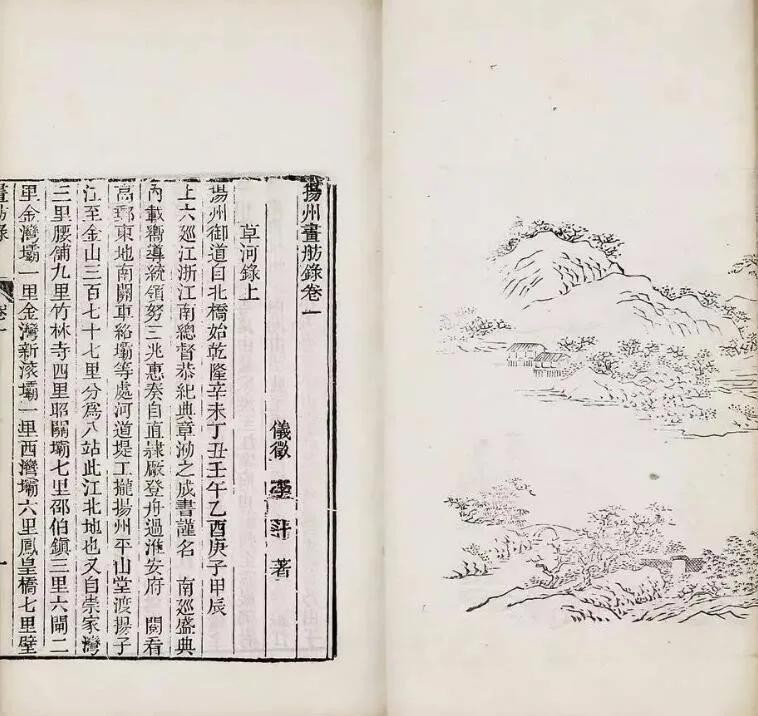 揚州畫舫錄卷一
儀徵 李斗 著
草河錄上
揚州御道自北橋始乾隆辛未丁丑壬午乙酉庚子甲辰
上六廵江浙江南總督恭紀典章泐之成書謹名 南廵盛典
內載嚮導統領努三兆惠奏自直隸廠登舟過淮安府 閱看
高郵東地南關車絡壩等處河道堤工攏揚州平山堂渡揚子
江至金山三百七十七里分爲八站此江北地也又自崇家灣
三里腰舖九里竹林寺四里昭關壩七里邵伯鎮三里六閘二
里金灣壩一里金灣新滚壩一里西灣壩六里鳳皇橋七里壁
畫舫錄 卷一 一